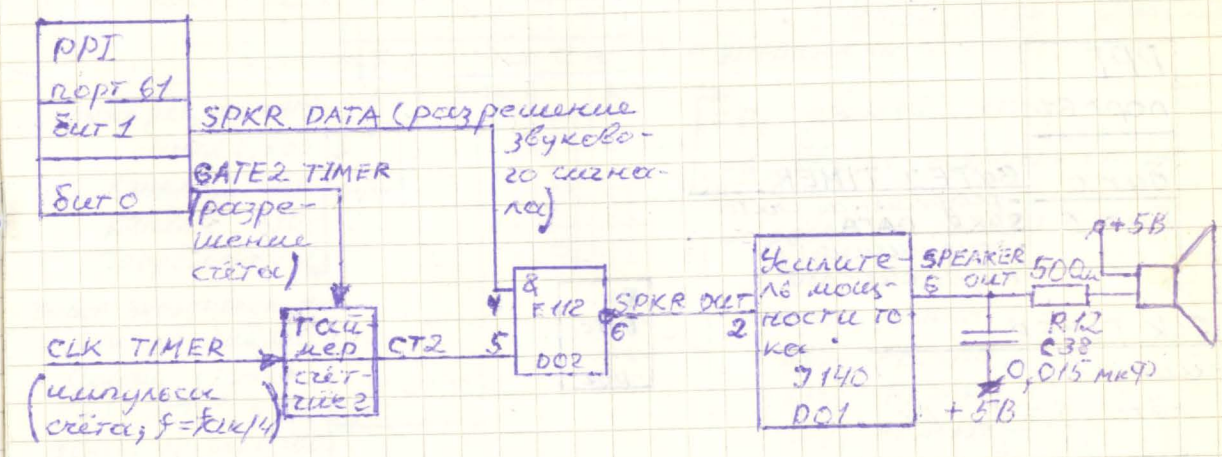 PPI
порт 61
бит 1
бит 0
SPKR DATA (разрешение
звуково-
го сигна-
ла)
GATE2 TIMER
(разре-
шение
счёта)
CLK TIMER
(импульсы
счёта, f=fак/4)
тай-
мер
счёт-
чик 2
CT2
4
5
&
F112
D02
SPKR OUT
6
2
Усилите-
ль мощ-
ности то
ка
J140
D01
SPEAKER
6 OUT
50Ом
R12
C38
0,015 мкФ
+5В
+5В